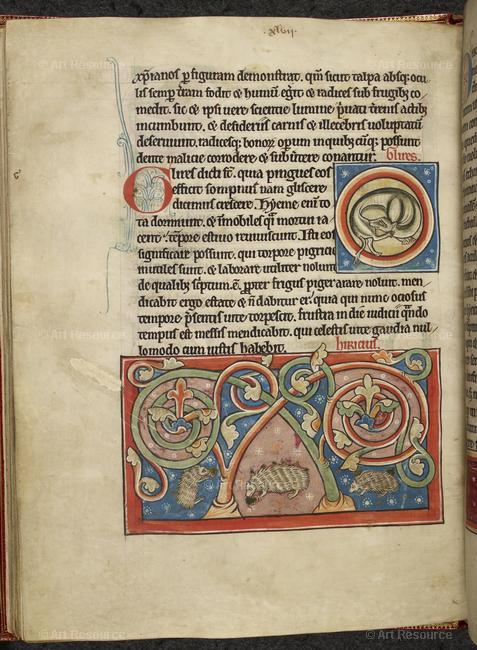 xlvij
xp̄ianos p̄ figuram demonstrat. qm̄ sicut talpa absq; ocu
lis semp t̄ram fodit & humū egit & radices sub frugibȝ co
medit. sic & ipsi vere scientie lumine p̄uati t̄renis actibȝ
incumbunt. & desideriis carnis & illecebris voluptatū
deseruiunt. radicesq; bonoȝ opum in quibȝ cūq; possunt
dente malicie corrodere & subūtere conantur. Glires.
Glires dicti st̄. quia pingues eos
efficit sompnus nam gliscere
dicimus crescere. Hyeme eni to
ta dormiunt. & imobiles q̄i mortui ia
cent. tempore estiuo reuiuiscunt. Isti eos
significare possunt. qui torpore pigricie
inutiles sunt. & laborare utiliter nolunt
de qualibȝ sc̄ptum ē. p̄pter frigus piger arare noluit. men
dicabit ergo estate & n̄ dabitur ei. quia qui nunc ociosus
tempore p̄sentis uite torpescit. frustra in die iudicii q̄ndo
tempus est messis mendicabit. qui celestis uite gaudia nul
lomodo cum iustis habebit. hiricius.
© Art Resource
© Art Resource
© Art Resource
© Art Resource